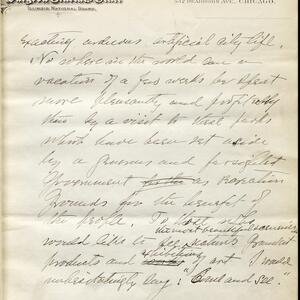 542 DEARBORN AVE., CHICAGO.
exacting arduous artificial city life.
No where in the world can a
vacation of a few weeks be spent
more pleasantly and profitably
than by a visit to these parks
which have been set aside
by a generous and farsighted
Government as Recreation
Grounds for the benefit of
the people. To those who
would like to see the most beautiful scenery
nature's grandest
products and exhibiting art I would
unhesitatingly say: "Come and see."